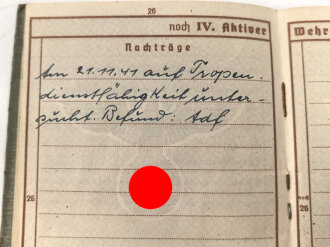 26
noch IV. Aktiver
Wehr
Nachträge
Am 21.11.41 auf Tropen-
dienstfähigkeit unter-
sucht. Befund: Adf
26
26